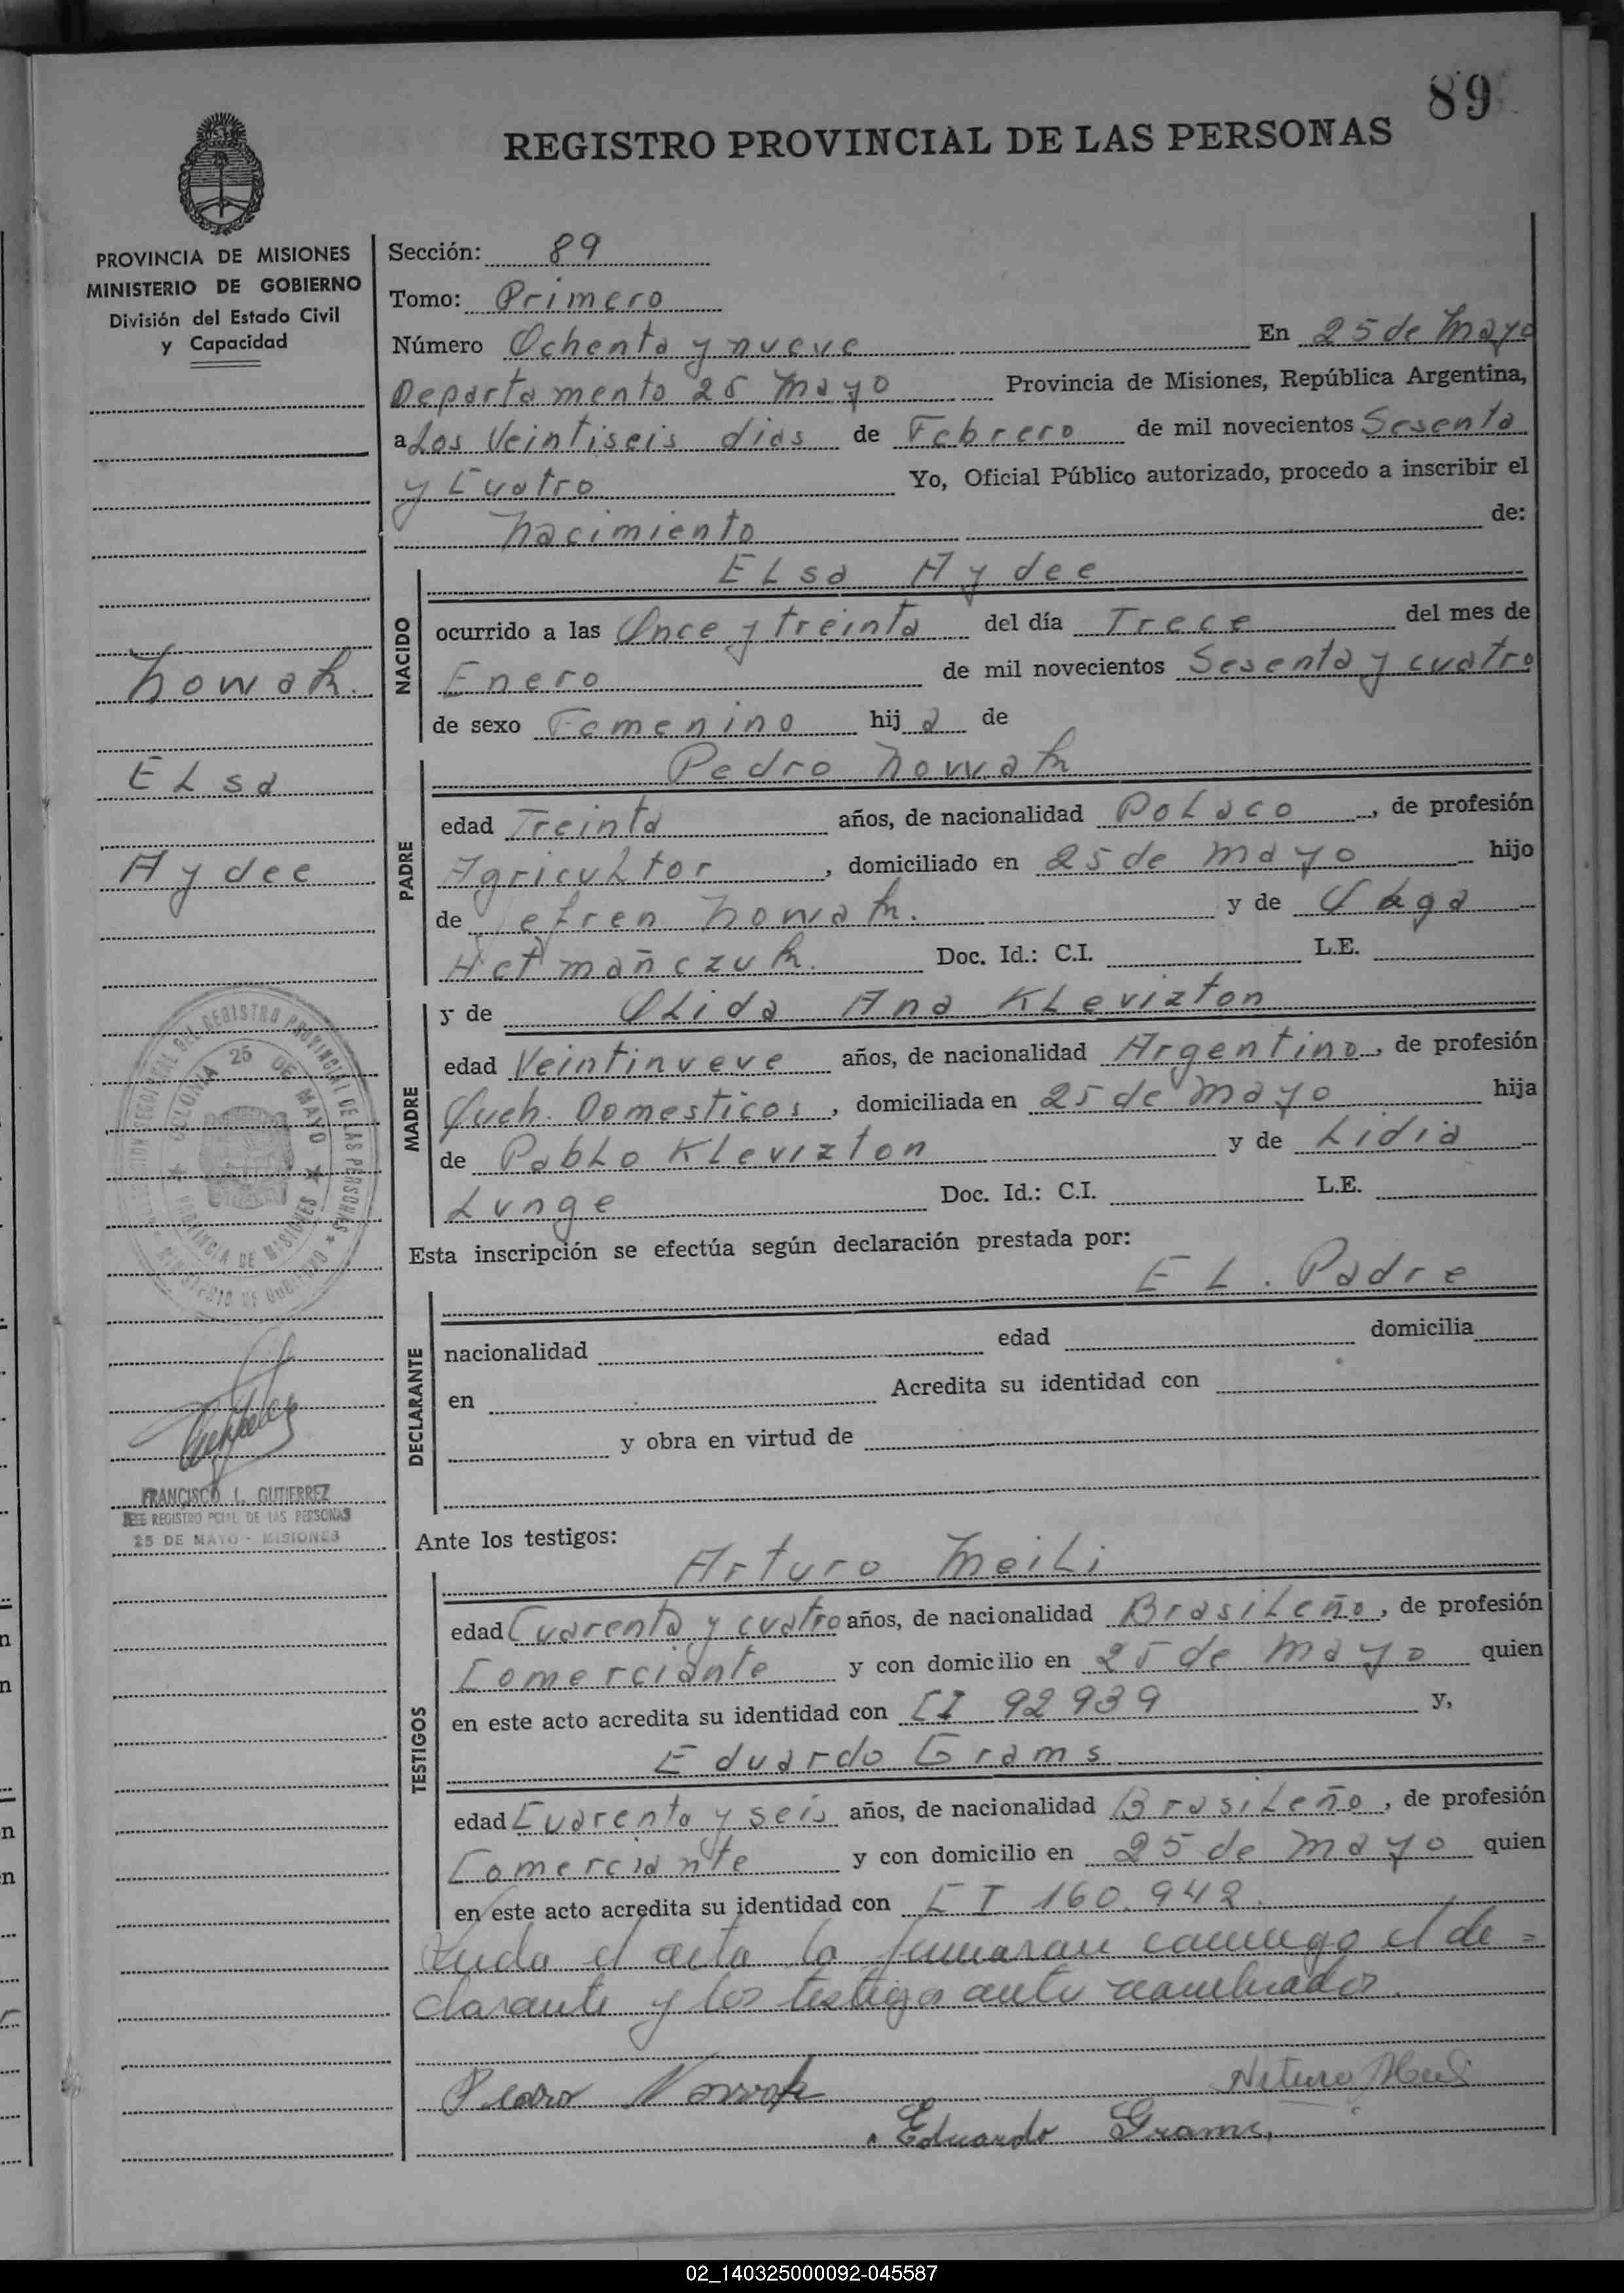 89
REGISTRO PROVINCIAL DE LAS PERSONAS
PROVINCIA DE MISIONES
MINISTERIO DE GOBIERNO
División del Estado Civil
y Capacidad
Nowak.
ELsa
Aydee
COLONIA 25 DE MAYO
PROVINCIA DE MISIONES
FRANCISCO L. GUTIERREZ
JEFE REGISTRO PCIAL DE LAS PERSONAS
25 DE MAYO - MISIONES
Sección: 89
Tomo: Primero
Número Ochenta y nueve En 25 de Mayo
Departamento 25 Mayo Provincia de Misiones, República Argentina,
a Los Veintiseis dias de Febrero de mil novecientos Sesenta
y Cuatro Yo, Oficial Público autorizado, procedo a inscribir el
Nacimiento de:
NACIDO
ELsa Aydee
ocurrido a las Once y treinta del día Trece del mes de
Enero de mil novecientos Sesenta y cuatro
de sexo Femenino hij a de
PADRE
Pedro Nowak
edad Treinta años, de nacionalidad PoLaco, de profesión
AgricuLtor, domiciliado en 25 de Mayo hijo
de Jefren Nowak. y de
Hetmañczuk. Doc. Id.: C.I. L.E.
MADRE
y de OLida Ana KLevizton
edad Veintinueve años, de nacionalidad Argentina, de profesión
Queh. Domesticos, domiciliada en 25 de Mayo hija
de PabLo KLevizton y de Lidia
Lunge Doc. Id.: C.I. L.E.
Esta inscripción se efectúa según declaración prestada por:
DECLARANTE
EL. Padre
nacionalidad edad domicilia
en Acredita su identidad con
y obra en virtud de
Ante los testigos:
TESTIGOS
Arturo MeiLi
edad Cuarenta y cuatro años, de nacionalidad BrasiLeño, de profesión
Comerciante y con domicilio en 25 de Mayo quien
en este acto acredita su identidad con CI 92939 y,
Eduardo Grams
edad Cuarenta y seis años, de nacionalidad BrasiLeño, de profesión
Comerciante y con domicilio en 25 de Mayo quien
en este acto acredita su identidad con CI 160.942.
Leida el acta la firmaran conmigo el de=
clarante y los testigos ante nombrados.
Pedro Nowak
Arturo Meili
Eduardo Grams.
02_140325000092-045587